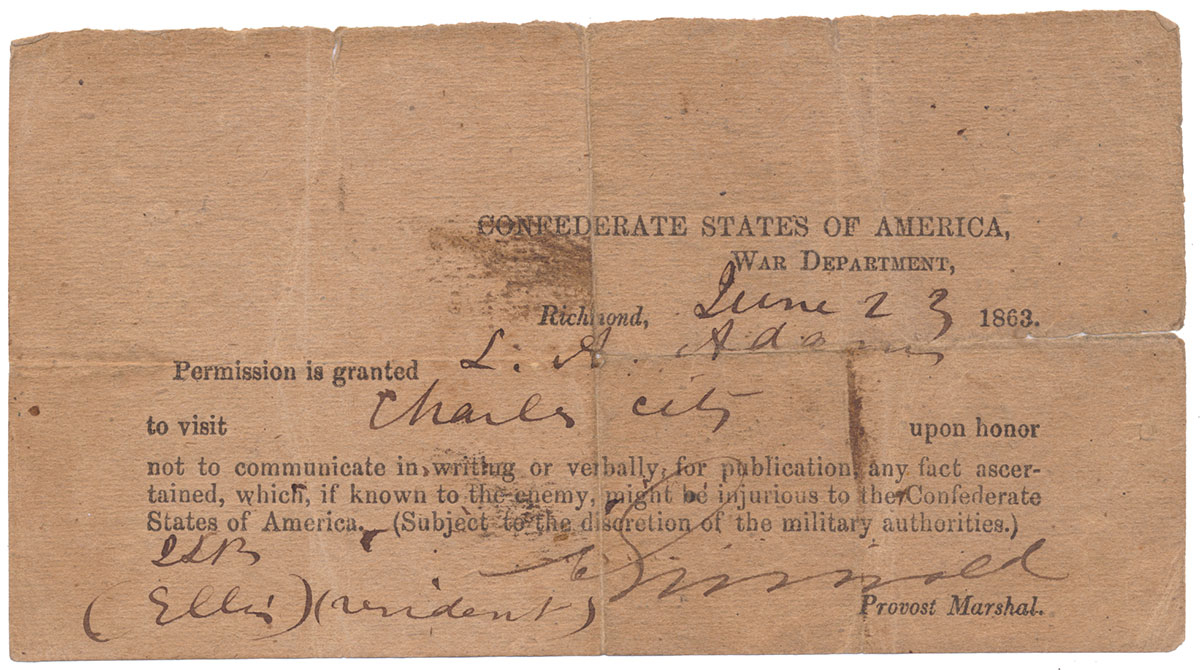 CONFEDERATE STATES OF AMERICA,
WAR DEPARTMENT,
Richmond, June 23 1863.
Permission is granted L. A. Adams
to visit Charles City upon honor
not to communicate in writing or verbally, for publication, any fact ascer-
tained, which, if known to the enemy, might be injurious to the Confederate
States of America. (Subject to the discretion of the military authorities.)
Griswold
(Ellis) (resident)
Provost Marshal.